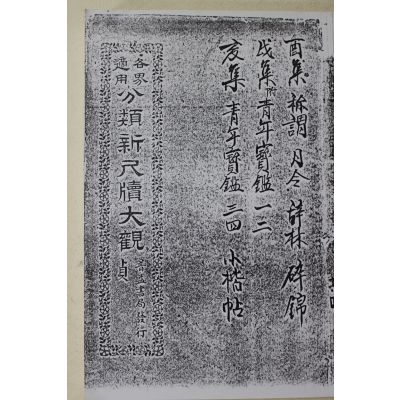 酉集 称謂 月令 詩林 碎錦
戌集 附 青年寶鑑 一二
亥集 青年寶鑑 三四 小楷帖
各界適用 分類新尺牘大觀 貞
書局發行